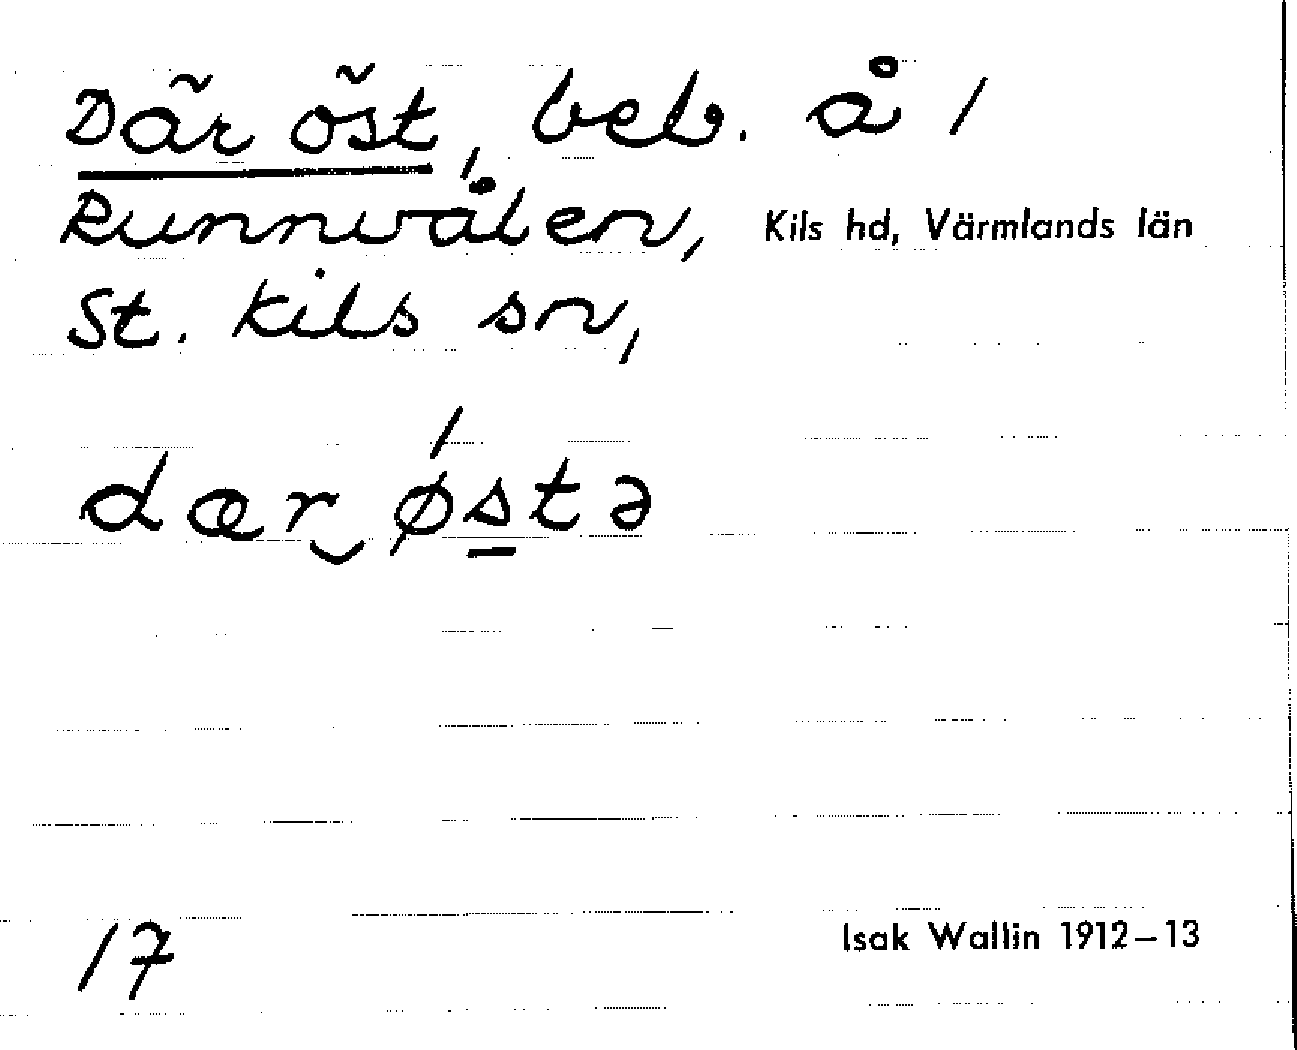 Där öst, beb. å 1
Runnvålen, Kils hd, Värmlands län
St. Kils sn,
dær østə
17
Isak Wallin 1912–13